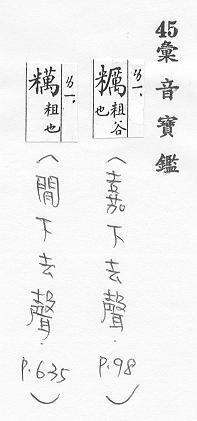 45彙音寶鑑
糲粗谷也
(嘉下去聲. P.98)
粗也
(閒下去聲. P.635)